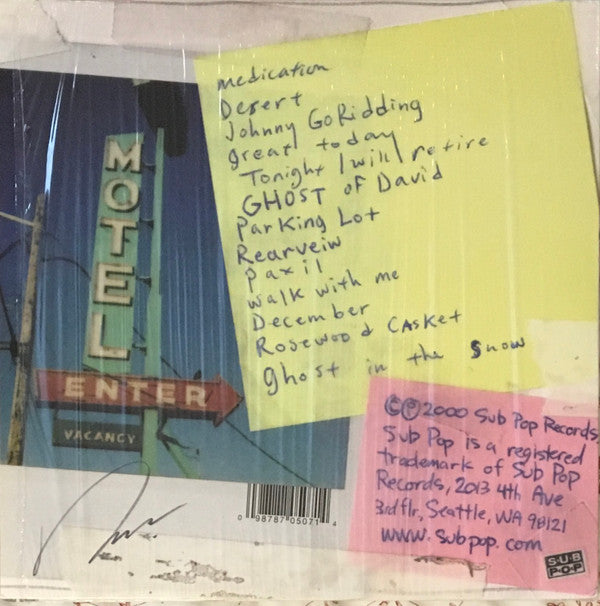 medication
Desert
Johnny Go Ridding
great today
Tonight I will retire
GHOST of David
Parking Lot
Rearveiw
Paxil
walk with me
December
Rosewood Casket
ghost in the snow
MOTEL
ENTER
VACANCY
0 98787 05071 4
©℗ 2000 Sub Pop Records,
Sub Pop is a registered
trademark of Sub Pop
Records, 2013 4th Ave
3rd flr, Seattle, WA 98121
www.subpop.com
SUB
POP